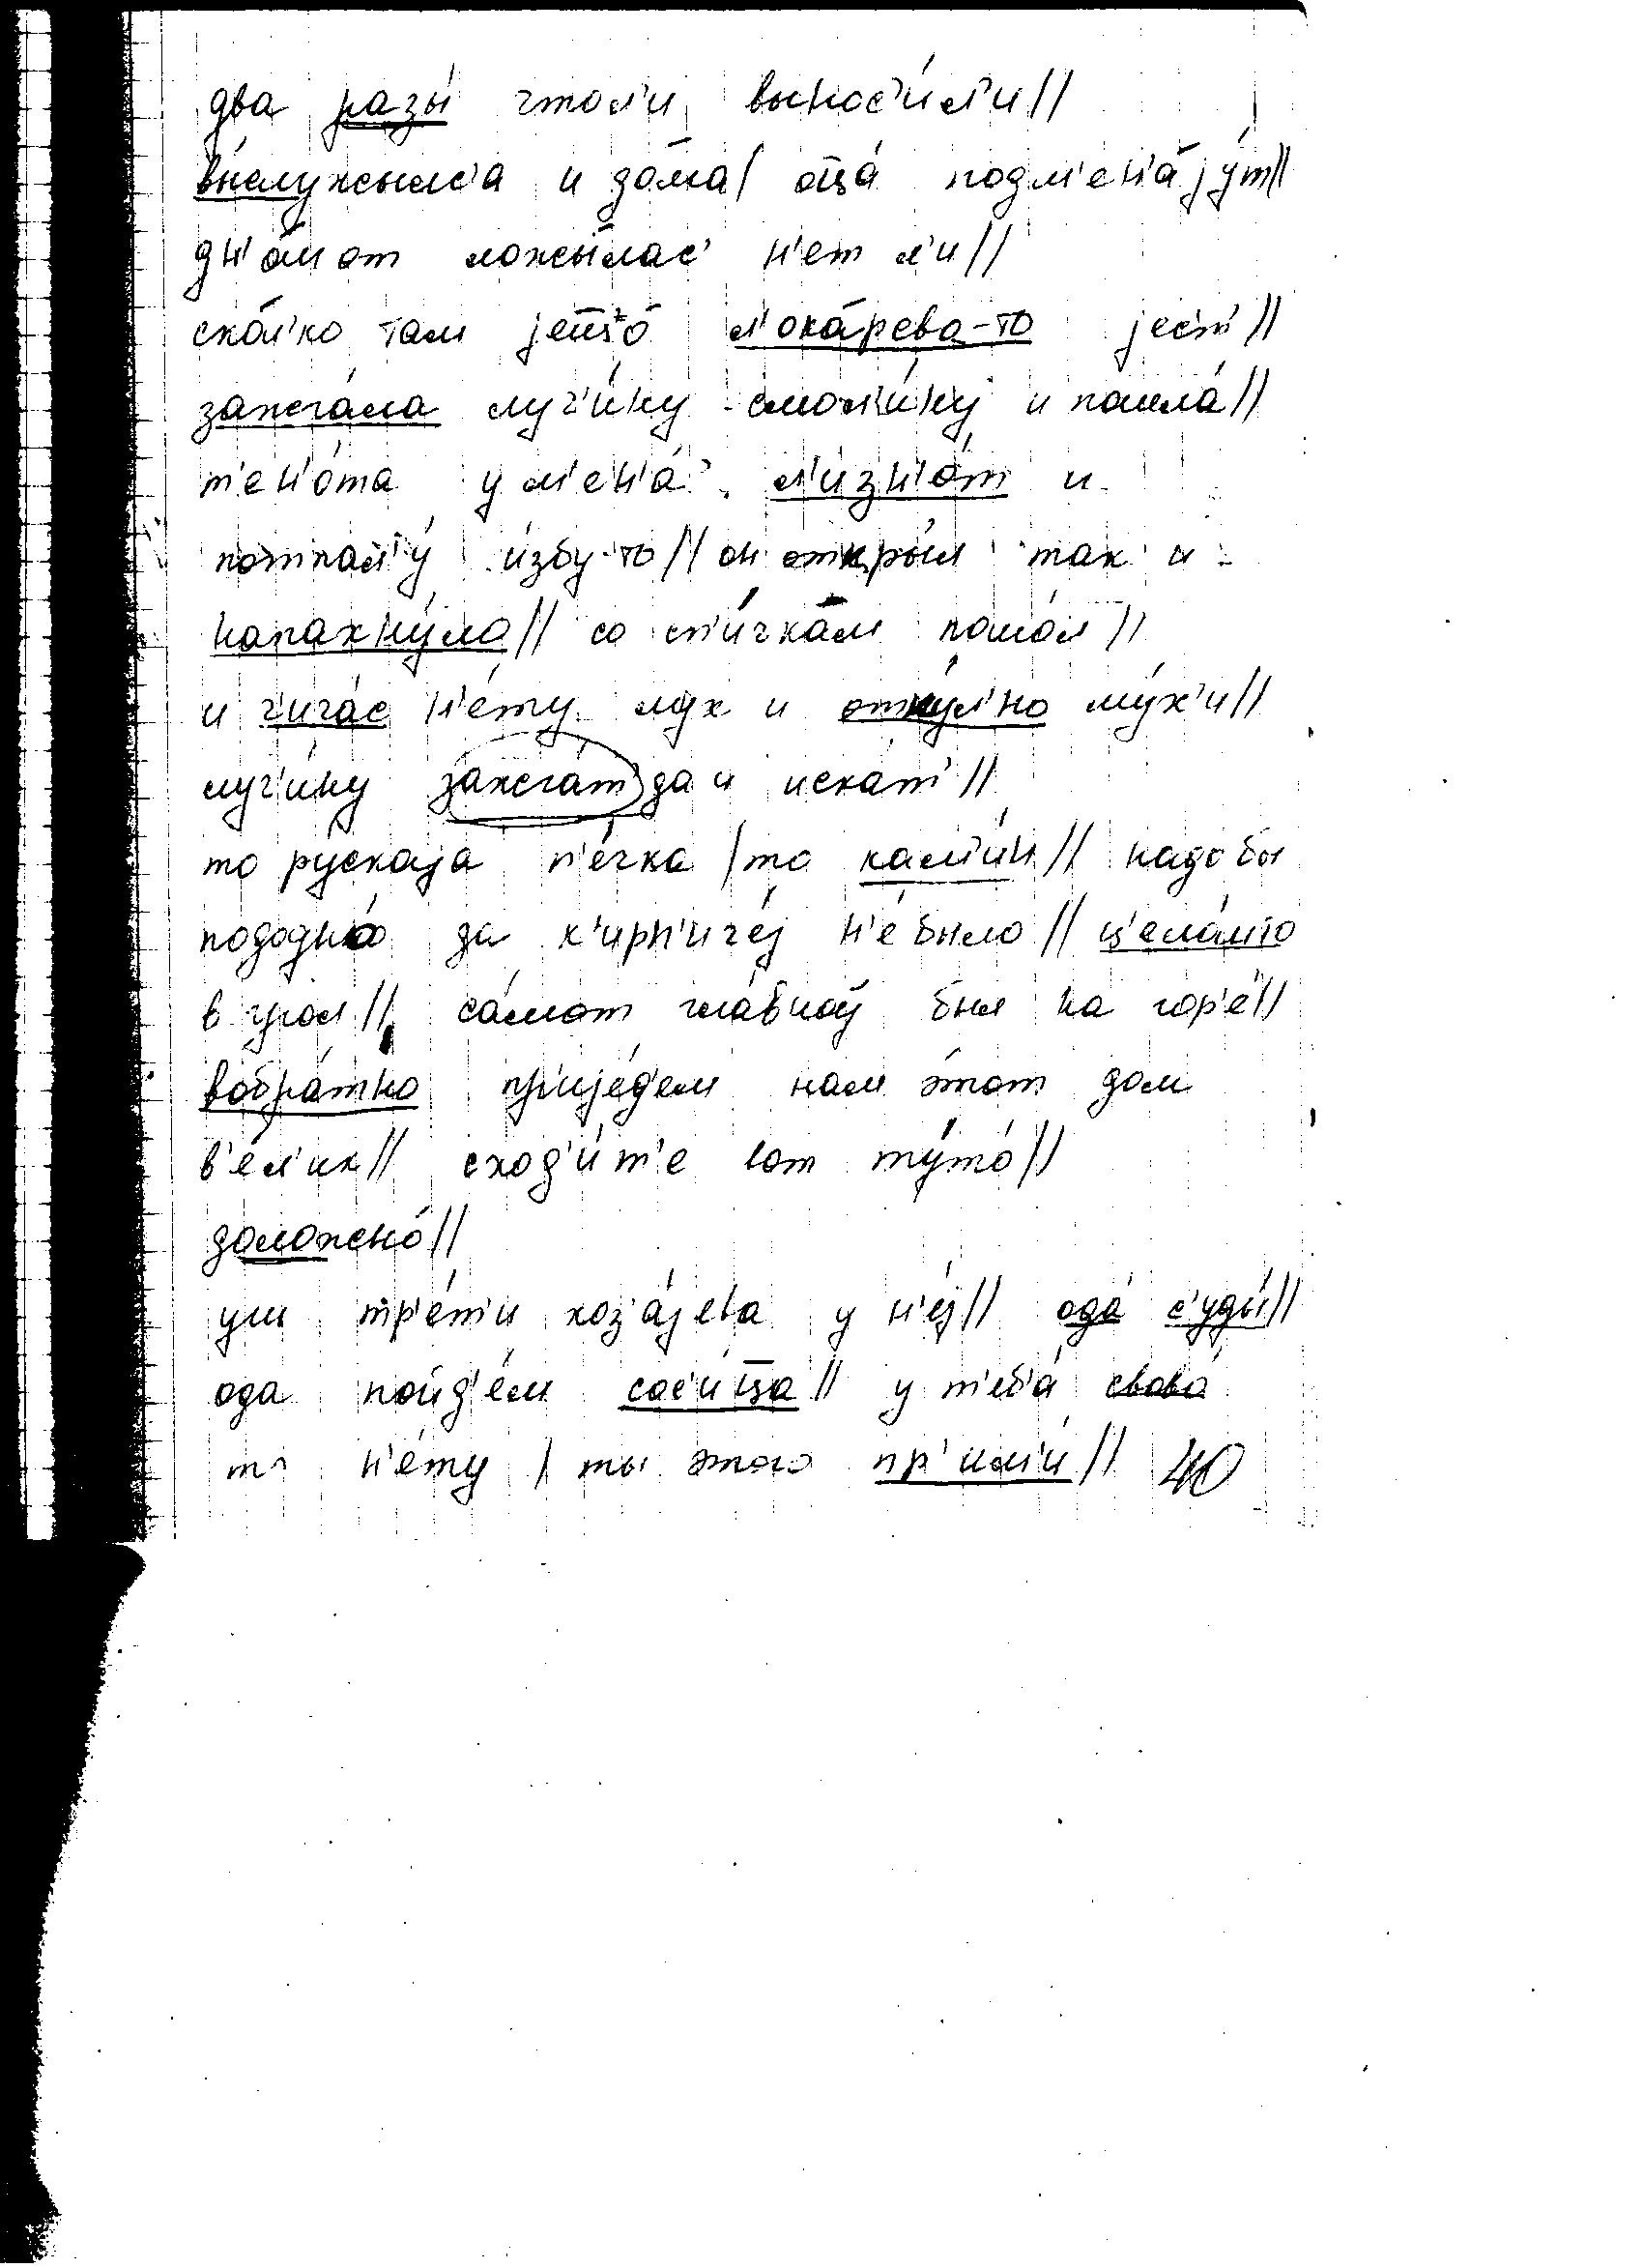 два разы́ чтол'и выноc'и́л'и//
вы́служылс'а и до́ма/ оц̅а́ подм'ен'а́jу́т//
дн'о́мот ложы́лас' н'ет л'и//
ско́л'ко там jещ̅о́ л'ока́рева-то jес'т'//
зажга́ла луч'и́ну смол'и́ну и пошла́//
т'ен'о́та у м'ен'а́ л'изн'о́т и
потпал'у́ и́збу-то// он откры́л так и
напахну́ло// со сп'и́чкам пошо́л//
и чича́с н'е́ту мух и отку́л'но му́х'и//
луч'и́ну зажга́т' да и иска́т'//
то рускаjа п'е́чка /то кам'и́н// надо бы
подогно́ да к'ирп'иче́j н'е́ было// ц'ела́што
в угол// са́мот гла́вноў был на гор'е́//
вобра́тно пр'иjе́д'ем нам э́тот дом
в'ел'ик// сход'и́т'е вот ту́то́//
доложено́//
уш тр'е́т'и хоз'а́jева у н'еj// ода́ с'уды́//
ода пойд'е́м сос'и́ц̅а// у т'еб'а́ свово́
то н'е́ту / ты этого пр'им'и́// 40